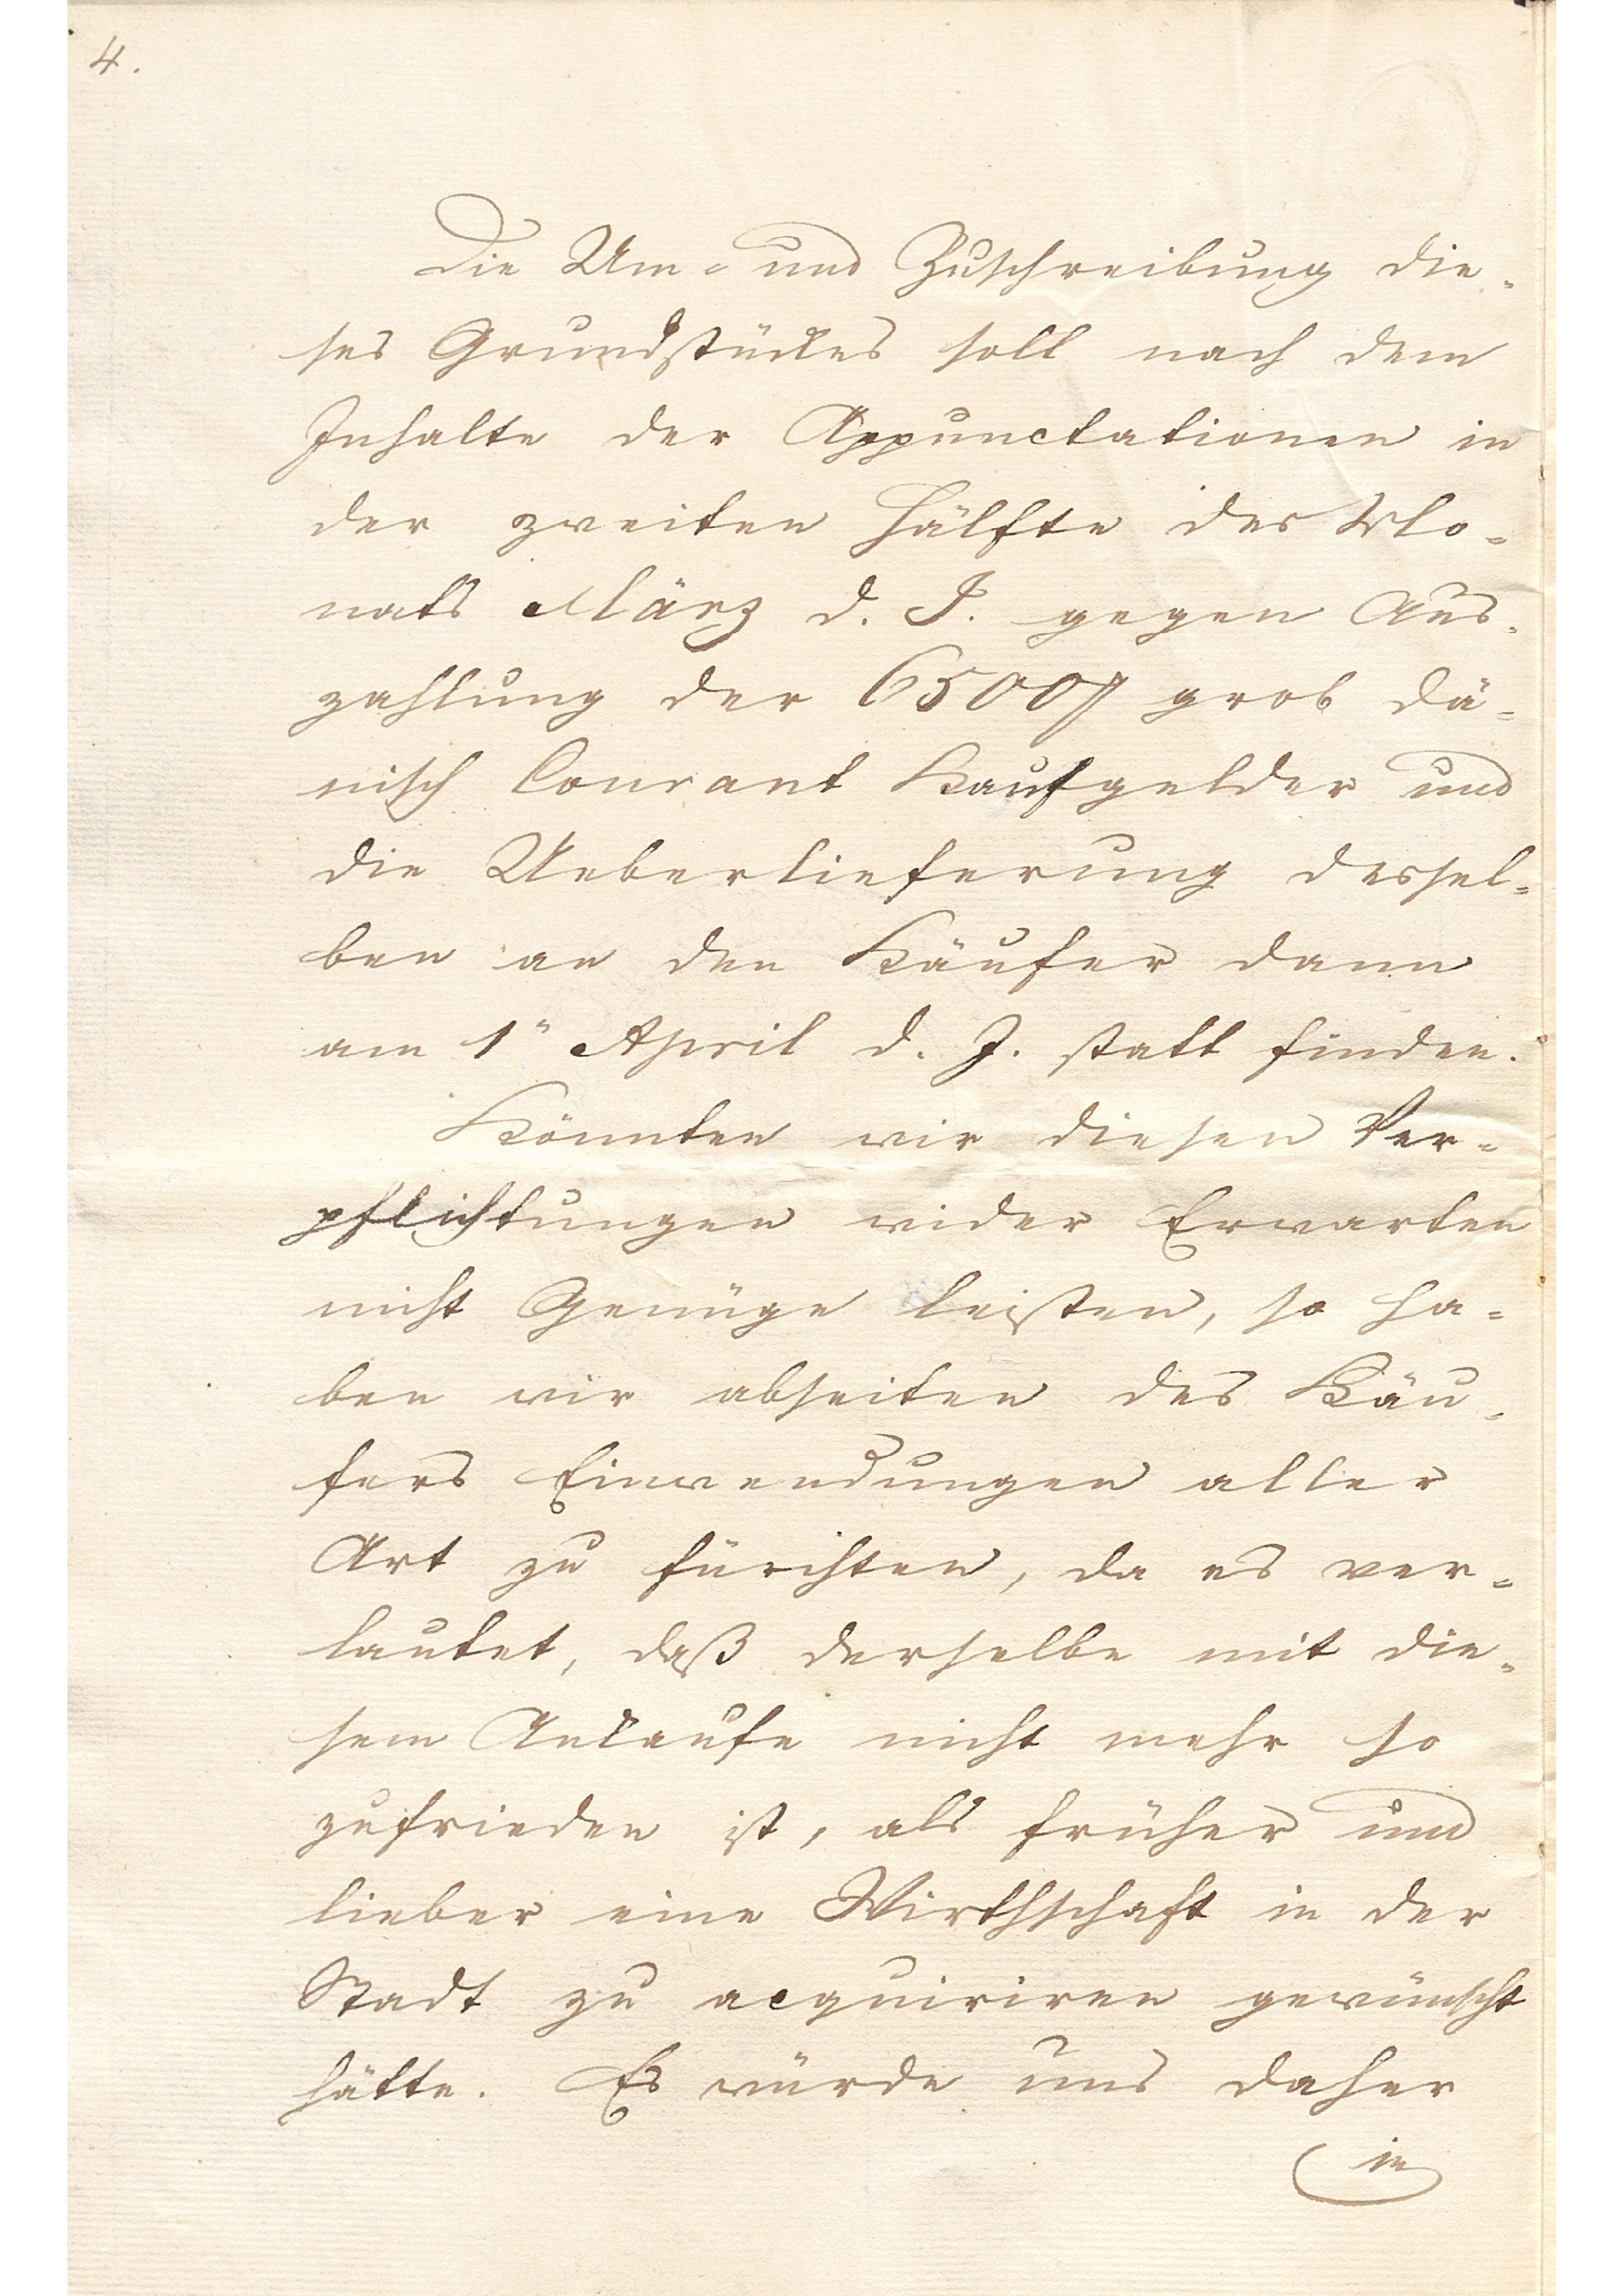 4.
Die Um- und Zuschreibung die-
ses Grundstückes soll nach dem
Inhalte der Appunctationen in
der zweiten Hälfte des Mo-
nats März d. J. gegen Aus-
zahlung der 6500 ₰ grob dä-
nisch Courant Kaufgelder und
die Ueberlieferung dessel-
ben an den Käufer dann
am 1n April d. J. statt finden.
Könnten wir diesen Ver-
pflichtungen wider Erwarten
nicht Genüge leisten, so ha-
ben wir abseiten des Käu-
fers Einwendungen aller
Art zu fürchten, da es ver-
lautet, daß derselbe mit die-
sem Ankaufe nicht mehr so
zufrieden ist, als früher und
lieber eine Wirthschaft in der
Stadt zu acquiriren gewünscht
hätte. Es würde uns daher
in